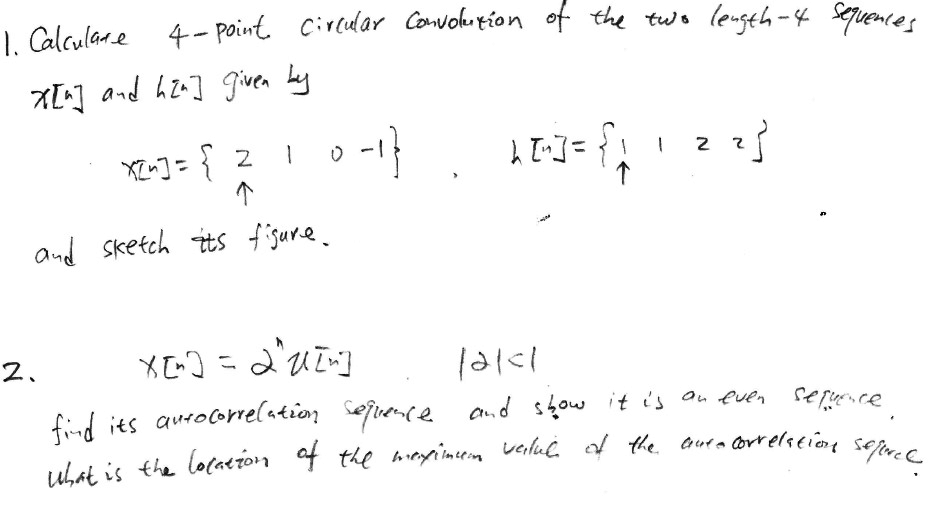 1. Calculate 4-point Circular Convolution of the two length-4 Sequences
x[n] and h[n] given by
x[n] = { 2 1 0 -1 } , h[n] = { 1 1 2 2 }
↑ ↑
and sketch its figure.
2. x[n] = α^n u[n] |α|<1
find its autocorrelation sequence and show it is an even sequence.
What is the location of the maximum value of the autocorrelation sequence